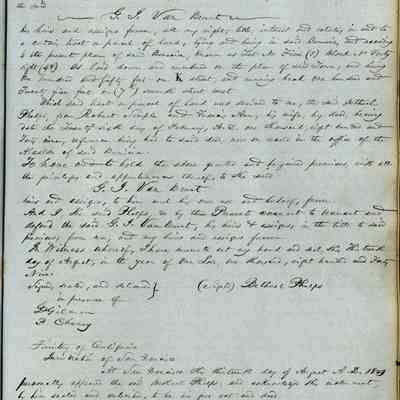 the said
G. I. Van Brunt
his heirs and assigns forever, all my right, title interest and estate, in and to
a certain lot or parcel of land, lying and being in said Benicia, and according
to the present plan of said Benicia, known as Lot No Five (5) block No Forty
eight (48) As laid down and numbered on the plan of said Town, and being
one hundred and fifty feet on K street, and running back one hundred and
Twenty five feet on (7") seventh street west
Which said lot or parcel of land was deeded to me, the said Bethuel
Phelps, from Robert Semple and Frances Ann, his wife, by deed, bearing
date the day of February, A.D. one thousand eight hundred and
forty nine, reference being had to said deed, now on record in the office of the
Alcalde of said Benicia
To have and to hold the above granted and premises, with all
the privileges and appurtenances thereof, to the said
G. I. Van Brunt
heirs and assigns, to him and his own use and behoof, forever
And I the said Phelps, do by these Presents covenant to warrant and
defend the said G. I. Van Brunt, his heirs & assigns, in the title to said
premises, from me, and my heirs and assigns forever
In Witness whereof, I have hereunto set my hand and seal, this Thirteenth
day of August, in the year of our Lord, one thousand, eight hundred and Forty
Nine
Signed, sealed, and delivered } (signed) Bethuel Phelps
in presence of
Gilman
F. Cheny
Territory of California
District of San Francisco
At San Francisco the thirteenth day of August A.D. 1849
personally appeared the said Bethuel Phelps, and acknowledged the instrument,
by him sealed and to be his free act and deed